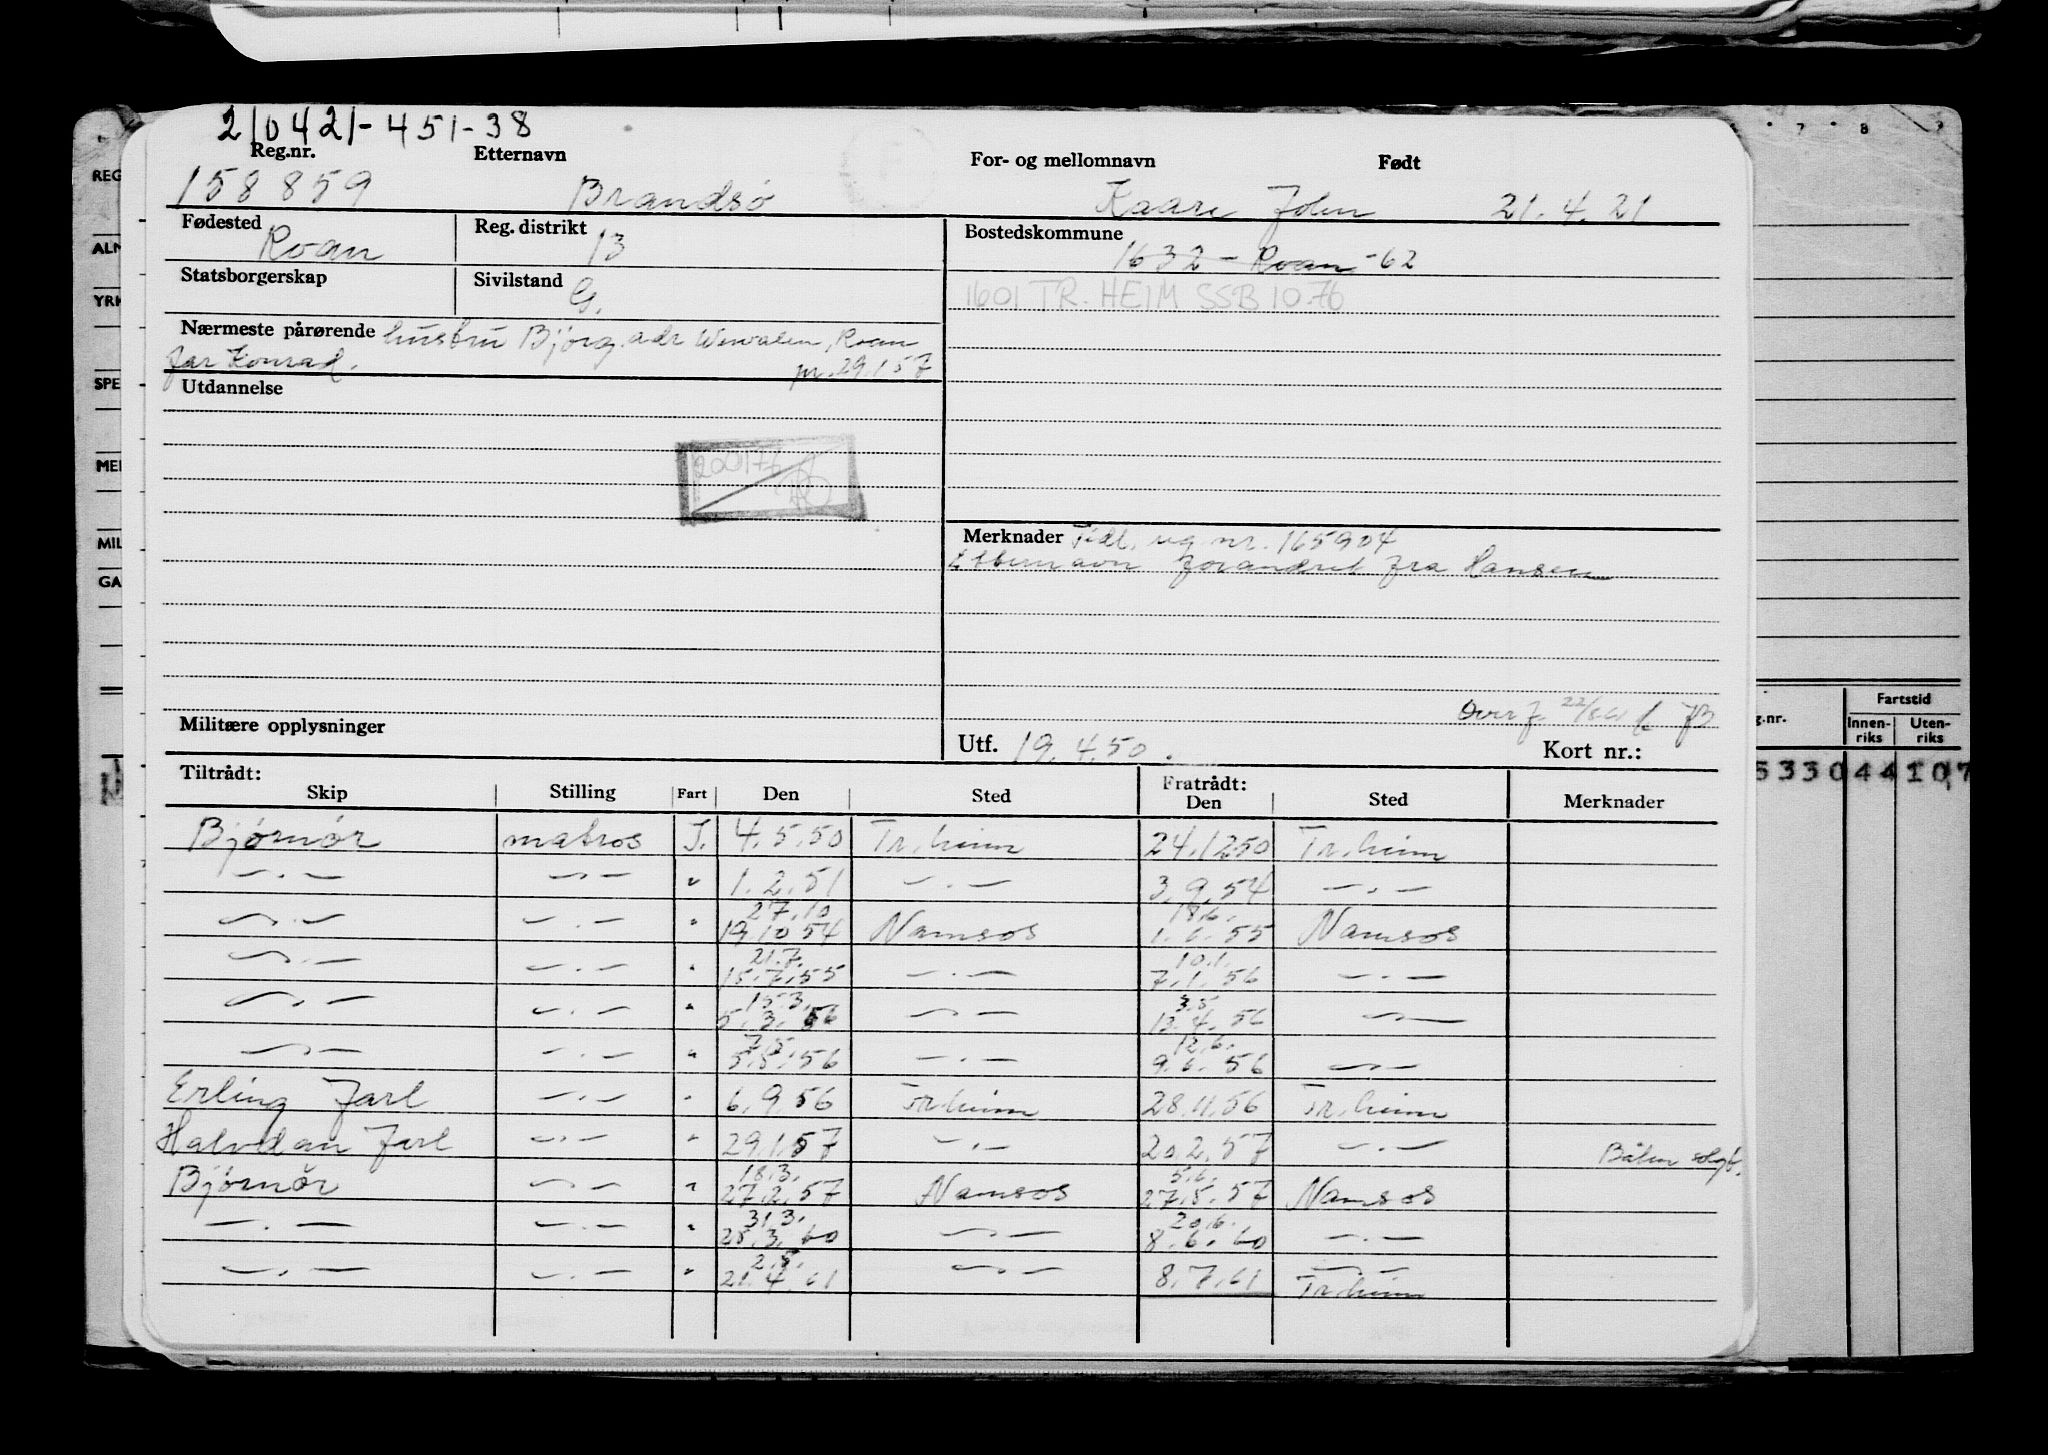 210421-451-38
Reg.nr. Etternavn For- og mellomnavn Født
158859 Brandsø Kaare John 21.4.21
Fødested Roan Reg. distrikt 13 Bostedskommune 1632 - Roan -62
Statsborgerskap Sivilstand G. 1601 TR.HEIM SSB 10.76
Nærmeste pårørende hustru Björg adr , Roan
far Konrad. pr. 29.1.57
Utdannelse
Merknader Tidl. reg nr. 165904
Etternavn forandret fra Hansen
Militære opplysninger
Utf. 19.4.50. Kort nr.:
Tiltrådt: Fratrådt:
Skip Stilling Fart Den Sted Den Sted Merknader
Bjørnør matros I. 4.5.50 Tr.heim 24.12.50 Tr.heim
— . — — . — " 1.2.51 — . — 3.9.54 — . —
27.10 18.6.
— . — — . — " 19.10 54 Namsos 1.6.55 Namsos
21.7. 10.1.
— . — — . — " 15.7.55 — . — 7.1.56 — . —
15.3. 3.5
— . — — . — " 5.3.56 — . — 13.4.56 — . —
7.5. 12.6.
— . — — . — " 5.5.56 — . — 9.6.56 — . —
Erling Jarl — . — " 6.9.56 Tr.heim 28.11.56 Tr.heim
Halvdan Jarl — . — " 29.1.57 — . — 20.2.57 — . — Båten solgt.
18.3. 5.6.
Bjørnør — . — " 27.2.57 Namsos 27.5.57 Namsos
31.3. 20.6.
— . — — . — " 28.3.60 — . — 8.6.60 — . —
2.5.
— . — — . — " 21.4.61 — . — 8.7.61 — . —
Tr.heim
REG
ALM
YRK
SPE
MEI
MIL
GA
7 8
g.nr. Fartstid
Innen-riks Uten-riks
5330 44 107